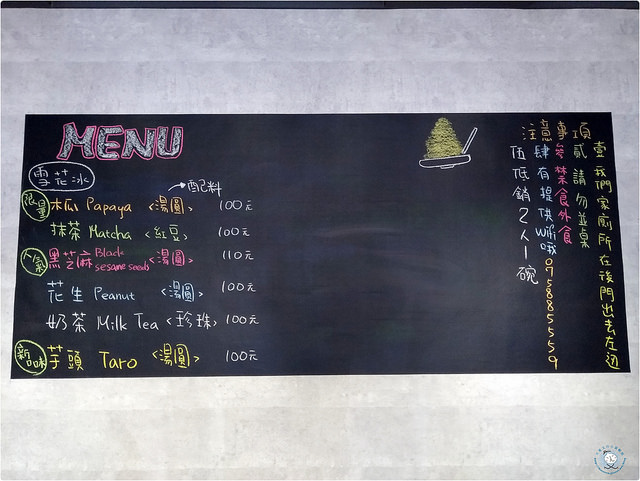 MENU
雪花冰
配料
限量 木瓜 Papaya <湯圓> 100元
抹茶 Matcha <紅豆> 100元
人氣 黑芝麻 Black sesame seeds <湯圓> 110元
花生 Peanut <湯圓> 100元
奶茶 Milk Tea <珍珠> 100元
新口味 芋頭 Taro <湯圓> 100元
注意事項
壹我們家廁所在後門出去左边
貳請勿並桌
參禁食外食
肆有提供wifi哦0758855559
伍低銷2人1碗